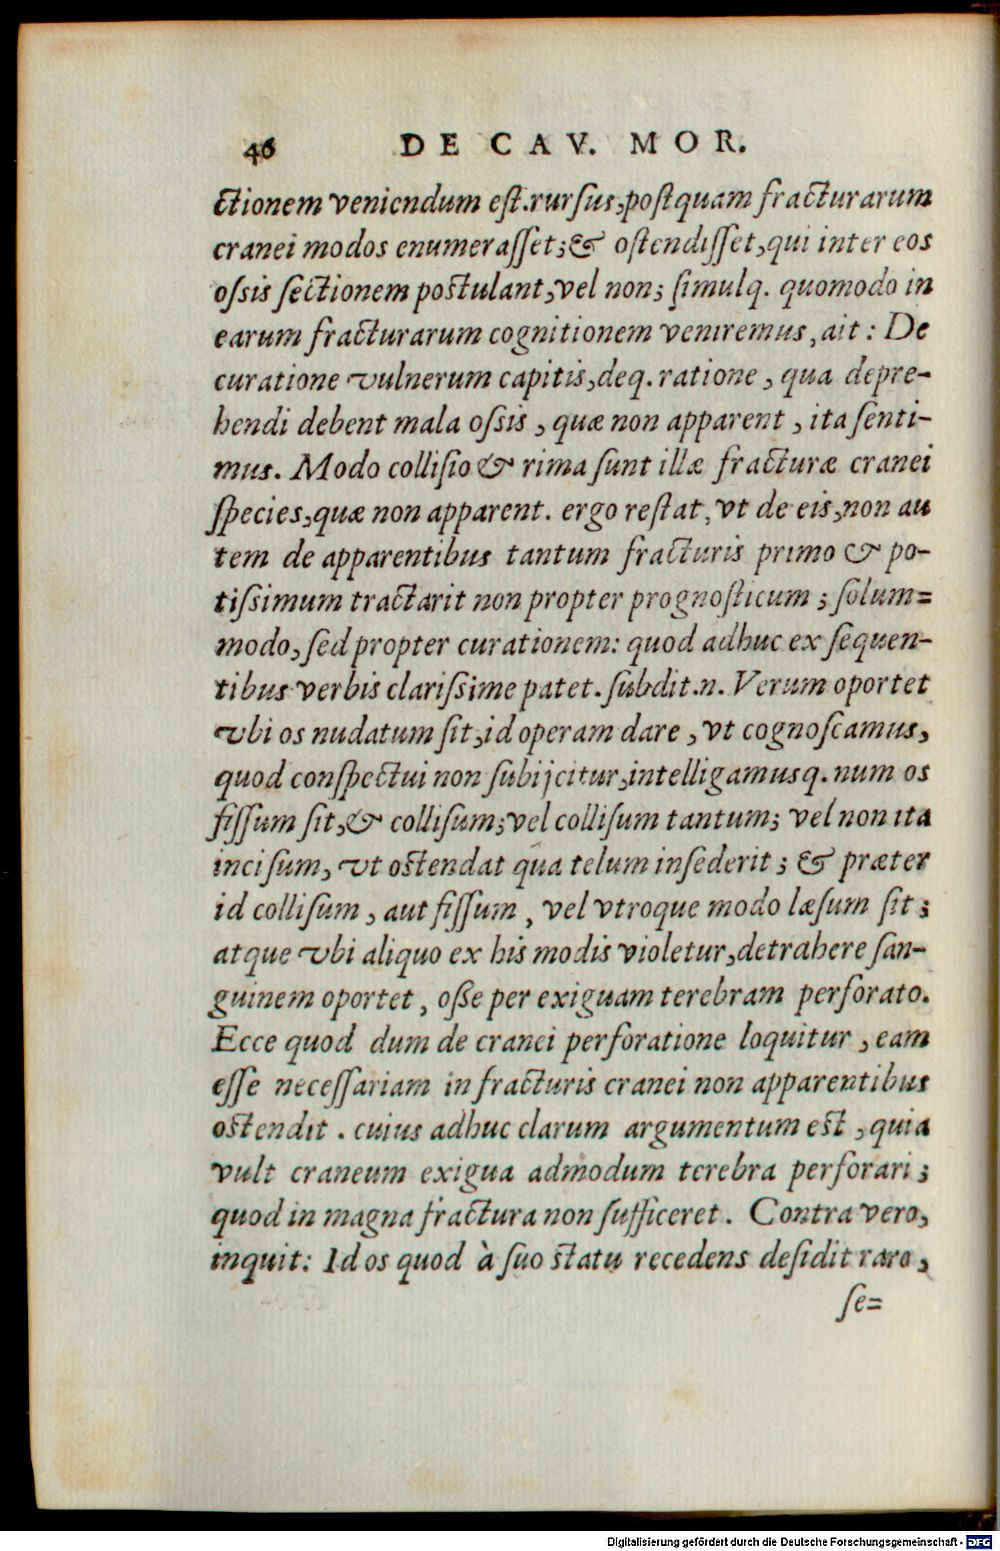 46 DE CAV. MOR.
ctionem veniendum est. rursus, postquam fracturarum
cranei modos enumerasset; & ostendisset, qui inter eos
ossis sectionem postulant, vel non; simulq. quomodo in
earum fracturarum cognitionem veniremus, ait: De
curatione vulnerum capitis, deq. ratione, qua depre-
hendi debent mala ossis, quæ non apparent, ita senti-
mus. Modo collisio & rima sunt illæ fracturæ cranei
species, quæ non apparent. ergo restat, vt de eis, non au
tem de apparentibus tantum fracturis primo & po-
tissimum tractarit non propter prognosticum; solum=
modo, sed propter curationem: quod adhuc ex sequen-
tibus verbis clarissime patet. subdit .n. Verum oportet
vbi os nudatum sit, id operam dare, vt cognoscamus,
quod conspectui non subijcitur, intelligamusq. num os
fissum sit, & collisum; vel collisum tantum; vel non ita
incisum, vt ostendat qua telum insederit; & præter
id collisum, aut fissum, vel vtroque modo læsum sit;
atque vbi aliquo ex his modis violetur, detrahere san-
guinem oportet, osse per exiguam terebram perforato.
Ecce quod dum de cranei perforatione loquitur, eam
esse necessariam in fracturis cranei non apparentibus
ostendit. cuius adhuc clarum argumentum est, quia
vult craneum exigua admodum terebra perforari;
quod in magna fractura non sufficeret. Contra vero,
inquit: Id os quod à suo statu recedens desidit raro,
se=
Digitalisierung gefördert durch die Deutsche Forschungsgemeinschaft - DFG